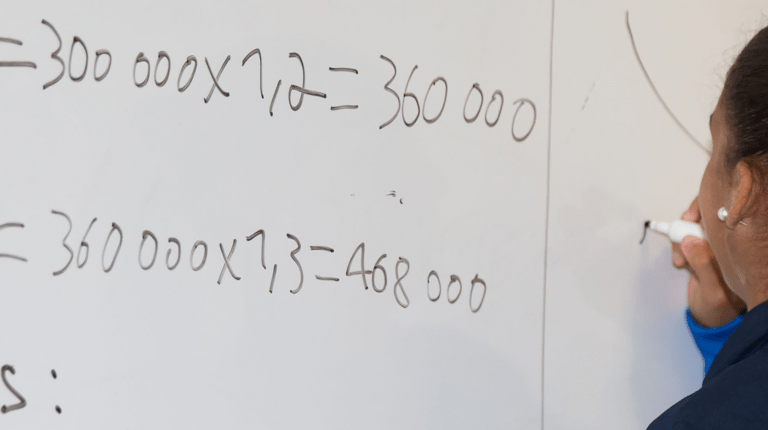 =300 000x1,2=360 000
=360 000x1,3=468 000
s: